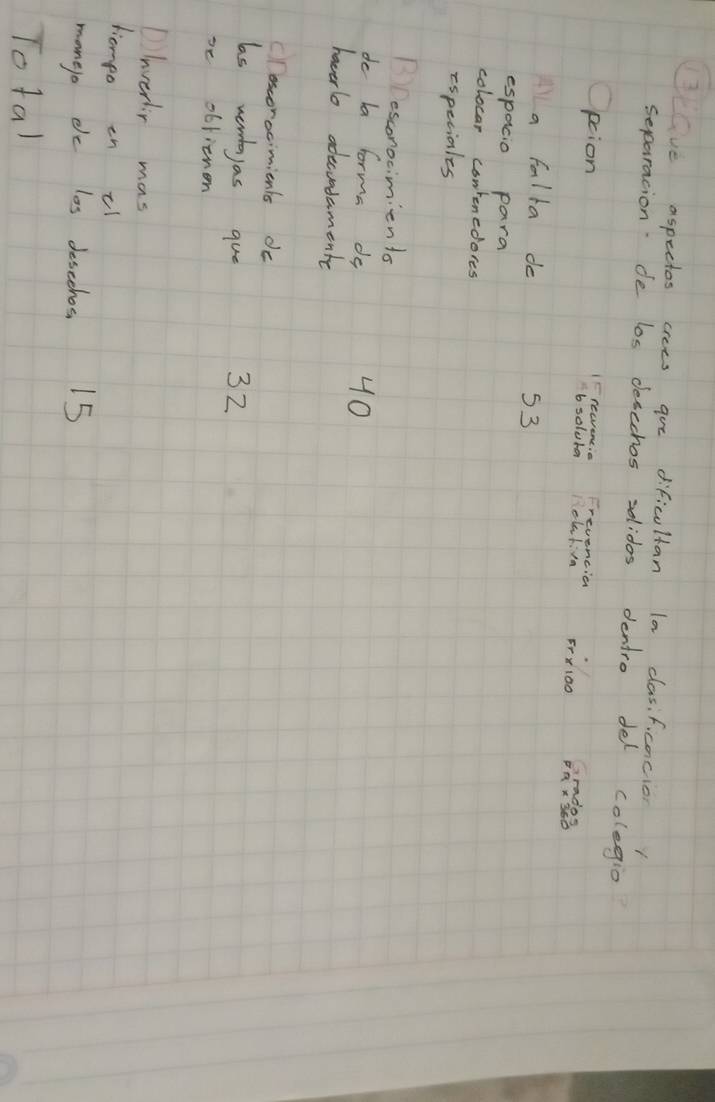 13 ¿Que aspectos crees que dificultan la clasificacion y
Separacion de los desechos solidos dentro del colegio?
Opcion
Frecuencia
absoluta
Frecuencia
Relativa
%
Fr x 100
Grados
Fa x 360
A) La falta de
espacio para
colocar contenedores
especiales
53
B) Desconocimiento
de la forma de
hacerlo adecuadamente
40
C) Desconocimiento de
las ventajas que
se obtienen
32
D) Invertir mas
tiempo en el
manejo de los desechos.
15
Total